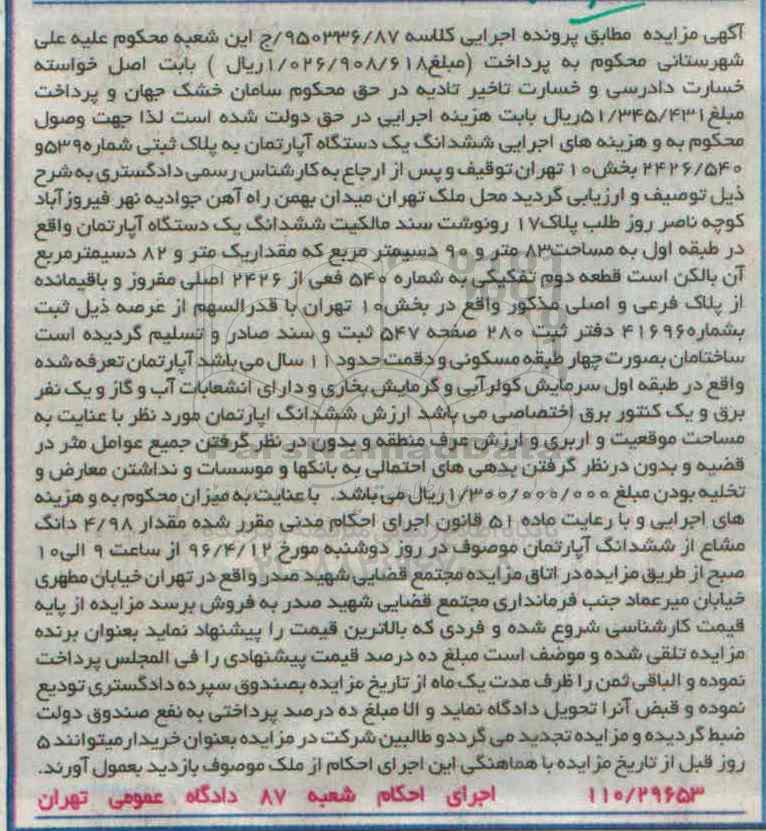 آگهی مزایده مطابق پرونده اجرایی کلاسه ۹۵۰۳۳۶/۸۷/ج این شعبه محکوم علیه علی
شهرستانی محکوم به پرداخت (مبلغ۱/۰۲۶/۹۰۸/۶۱۸ریال ) بابت اصل خواسته
خسارت دادرسی و خسارت تاخیر تادیه در حق محکوم سامان خشک جهان و پرداخت
مبلغ۵۱/۳۴۵/۴۳۱ریال بابت هزینه اجرایی در حق دولت شده است لذا جهت وصول
محکوم به و هزینه های اجرایی ششدانگ یک دستگاه آپارتمان به پلاک ثبتی شماره۵۳۹و
۲۴۲۶/۵۴۰ بخش۱۰ تهران توقیف و پس از ارجاع به کارشناس رسمی دادگستری به شرح
ذیل توصیف و ارزیابی گردید محل ملک تهران میدان بهمن راه آهن جوادیه نهر فیروزآباد
کوچه ناصر روز طلب پلاک۱۷ رونوشت سند مالکیت ششدانگ یک دستگاه آپارتمان واقع
در طبقه اول به مساحت۸۳ متر و ۹۰ دسیمتر مربع که مقداریک متر و ۸۲ دسیمترمربع
آن بالکن است قطعه دوم تفکیکی به شماره ۵۴۰ فعی از ۲۴۲۶ اصلی مفروز و باقیمانده
از پلاک فرعی و اصلی مذکور واقع در بخش۱۰ تهران با قدرالسهم از عرصه ذیل ثبت
بشماره۴۱۶۹۶ دفتر ثبت ۲۸۰ صفحه ۵۴۷ ثبت و سند صادر و تسلیم گردیده است
ساختامان بصورت چهار طبقه مسکونی و دقمت حدود ۱۱ سال می باشد آپارتمان تعرفه شده
واقع در طبقه اول سرمایش کولرآبی و گرمایش بخاری و دارای انشعابات آب و گاز و یک نفر
برق و یک کنتور برق اختصاصی می باشد ارزش ششدانگ اپارتمان مورد نظر با عنایت به
مساحت موقعیت و اربری و ارزش عرف منطقه و بدون در نظر گرفتن جمیع عوامل مثر در
قضیه و بدون درنظر گرفتن بدهی های احتمالی به بانکها و موسسات و نداشتن معارض و
تخلیه بودن مبلغ ۱/۳۰۰/۰۰۰/۰۰۰ ریال می باشد. با عنایت به میزان محکوم به و هزینه
های اجرایی و با رعایت ماده ۵۱ قانون اجرای احکام مدنی مقرر شده مقدار ۴/۹۸ دانگ
مشاع از ششدانگ آپارتمان موصوف در روز دوشنبه مورخ ۹۶/۴/۱۲ از ساعت ۹ الی۱۰
صبح از طریق مزایده در اتاق مزایده مجتمع قضایی شهید صدر واقع در تهران خیابان مطهری
خیابان میرعماد جنب فرمانداری مجتمع قضایی شهید صدر به فروش برسد مزایده از پایه
قیمت کارشناسی شروع شده و فردی که بالاترین قیمت را پیشنهاد نماید بعنوان برنده
مزایده تلقی شده و موضف است مبلغ ده درصد قیمت پیشنهادی را فی المجلس پرداخت
نموده و الباقی ثمن را ظرف مدت یک ماه از تاریخ مزایده بصندوق سپرده دادگستری تودیع
نموده و قبض آنرا تحویل دادگاه نماید و الا مبلغ ده درصد پرداختی به نفع صندوق دولت
ضبط گردیده و مزایده تجدید می گرددو طالبین شرکت در مزایده بعنوان خریدار میتوانند ۵
روز قبل از تاریخ مزایده با هماهنگی این اجرای احکام از ملک موصوف بازدید بعمول آورند.
۱۱۰/۲۹۶۵۳ اجرای احکام شعبه ۸۷ دادگاه عمومی تهران